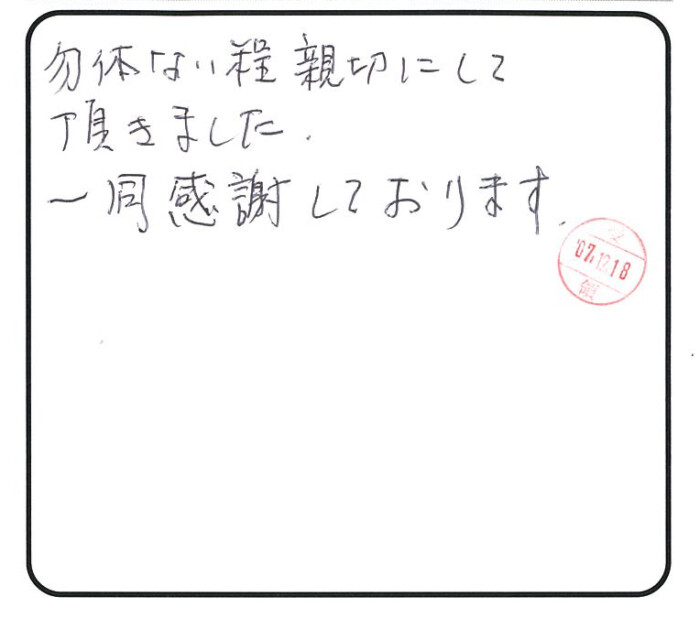 勿体ない程親切にして
頂きました.
一同感謝しております.
受
'07.12.18
領